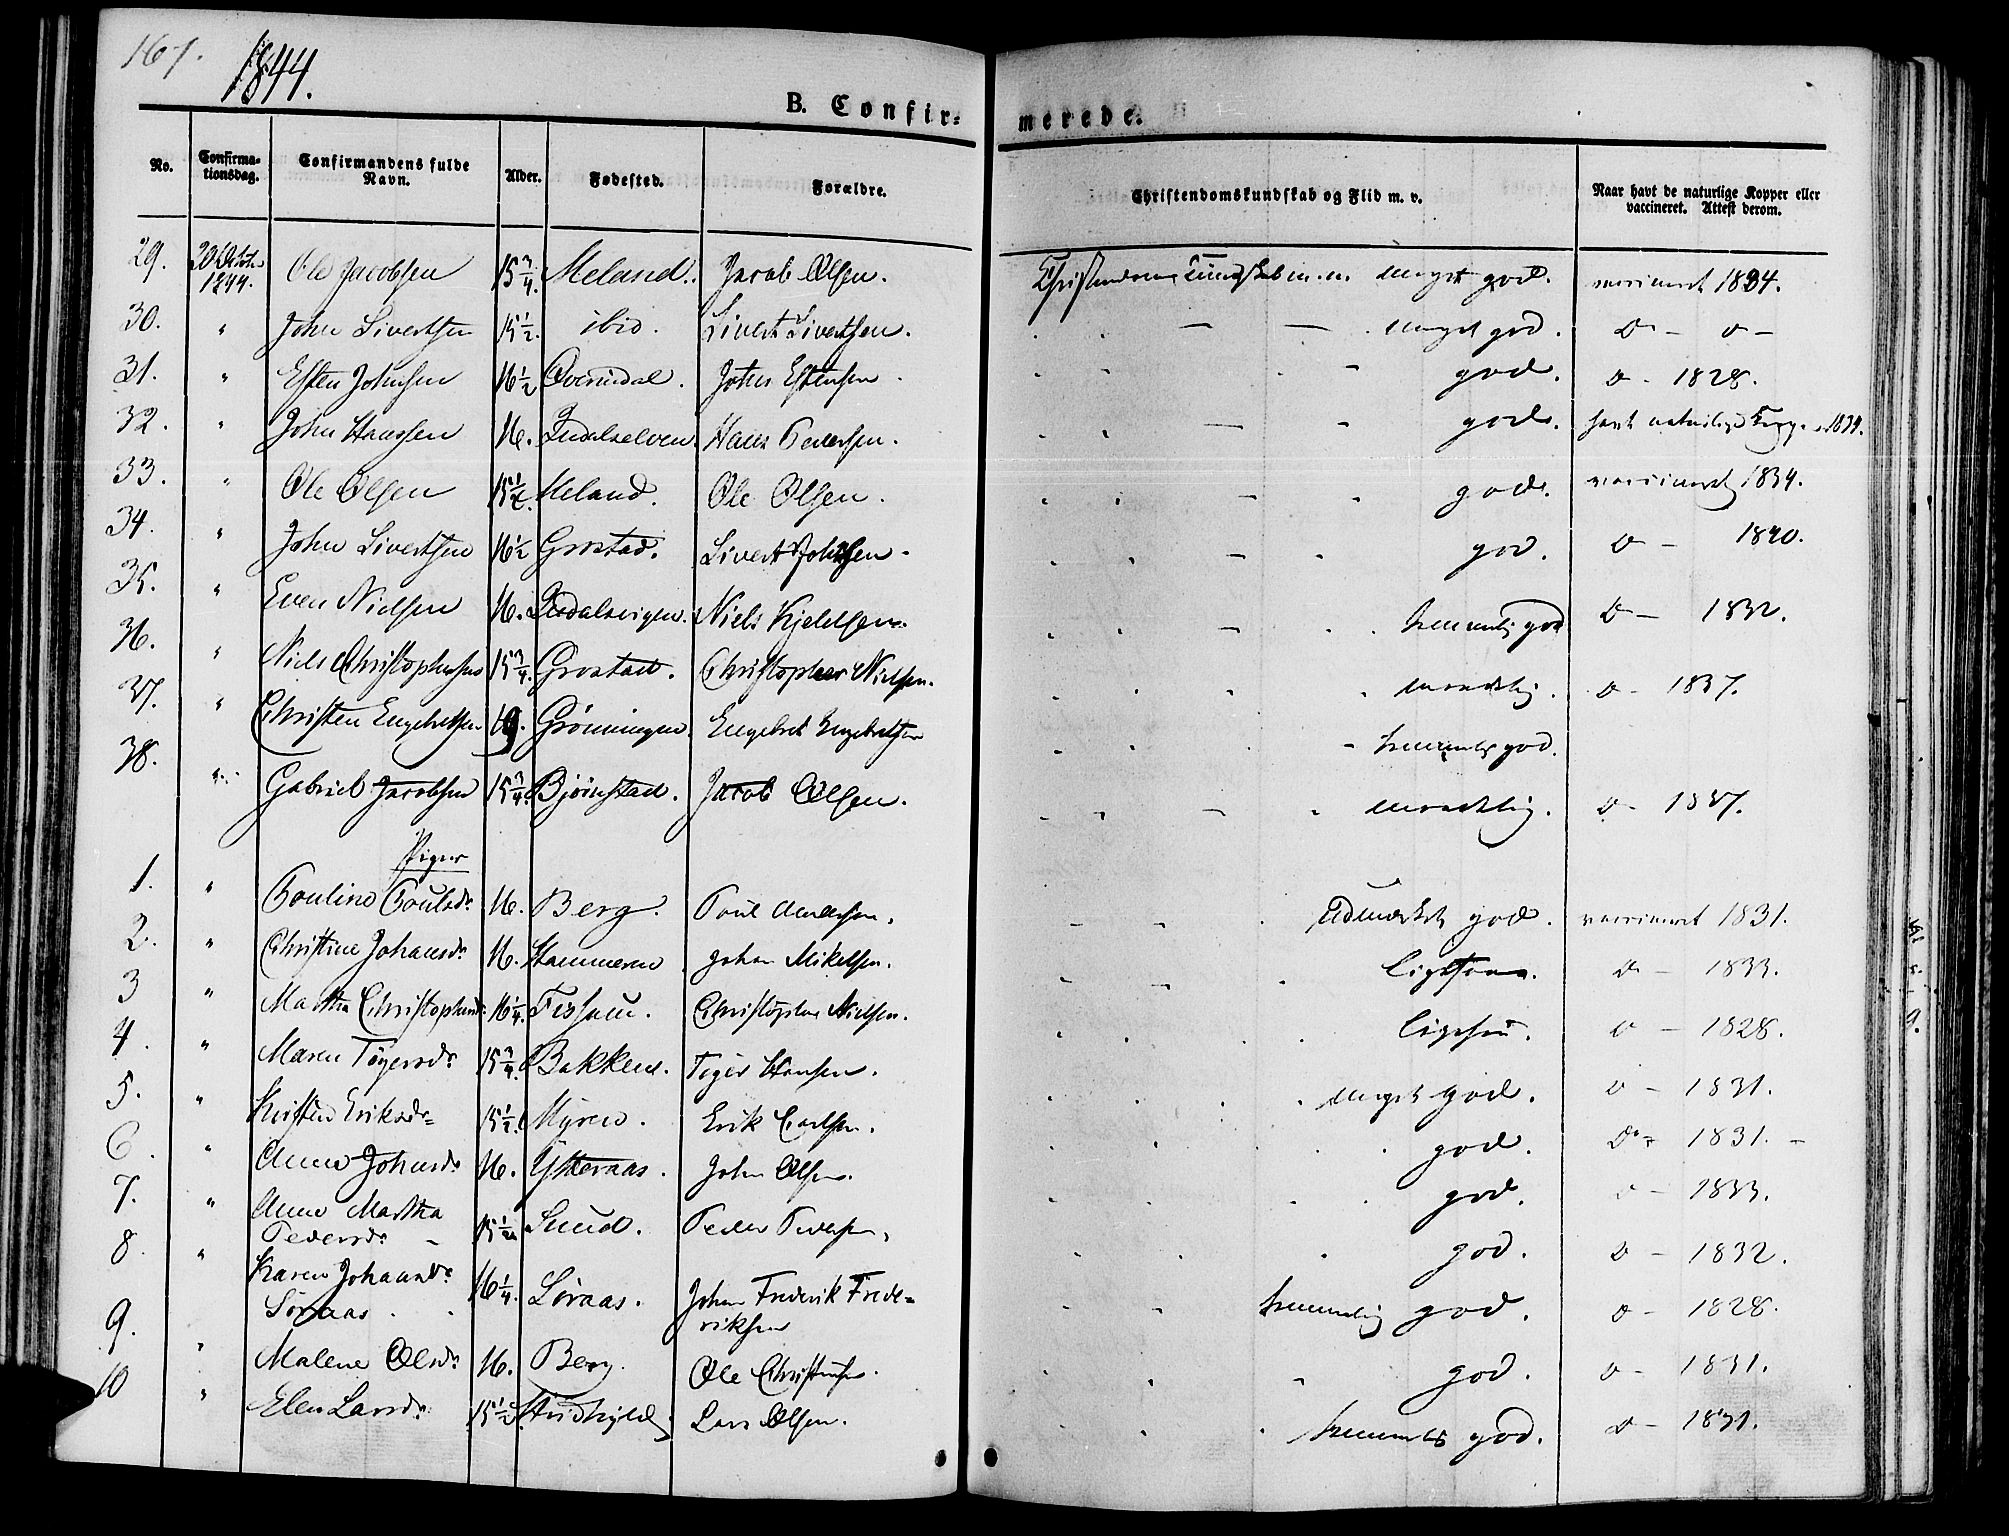 167.
1844.
B. Confir=
merede.
No. Confirma= tionsdag. Confirmandens fulde Navn. Alder. Fødested. Forældre. Christendomskundskab og Flid m. v. Naar havt de naturlige Kopper eller vaccineret. Attest derom.
29. 20 Octobr 1844. Ole Jacobsen 15 3/4. Meland. Jacob Olsen. Christendoms Kundskab m. m. meget god. vaccineret 1834.
30. " John Sivertsen 15 1/2. ibid. Sivert Sivertsen. meget god. D - o -
31. " Esten Johnsen 16 1/2 Overindal. John Estensen. god. D. 1828.
32. " John Hanssen 16. Indalselven. Hans Pedersen. god. havt naturlige Kopp. 1834.
33. " Ole Olsen 15 1/2. Meland. Ole Olsen. god. vaccineret 1834.
34. " John Sivertsen 16 1/2 Grostad. Sivert Johnsen. god. D - 1840.
35. " Even Nielsen 16. Indalsvigen. Niels Kjeldsen. temmelig god D - 1832.
36. " Niels Christophersen 15 3/4. Grostad. Christopher Nielsen. maadelig. D - 1837.
37. " Christen Engebretsen 19. Grønningen. Engebret Engebretsen temmelig god.
38. " Gabriel Jacobsen 15 3/4. Bjørnstad. Jacob Olsen. maadelig. D - 1837.
Piger
1. " Pouline Poulsdr 16. Berg. Poul Andersen. udmærket god. vaccineret 1831.
2. " Christine Johansdr 16. Hammeren Johan Mikelsen. ligesaa. D - 1833.
3 " Martha Christophersdr 16 1/4. Fissum. Christopher Nielsen. ligesaa. D - 1828.
4. " Maren Tøgersdr 15 3/4. Bakken. Tøger Hansen. meget god. D - 1831.
5. " Kirsten Eriksdr 15 1/2. Myren. Erik Carlsen. god. D - 1831. -
6. " Anne Johnsdr 16. Ytteraas. John Olsen. god. D - 1833.
7. " Anne Martha
Pedersdr - 15 1/2 Sund. Peder Pedersen. god. D - 1832.
8. " Karen Johansdr
Søraas. 16 1/4. Søraas. Johan Frederik Frede=
riksen temmelig god. D - 1828.
9. " Malene Olsdr 16. Berg. Ole Christensen. god. D - 1831.
10 " Elen Larsdr 15 1/2. Lars Olsen. temmelig god. D - 1831.